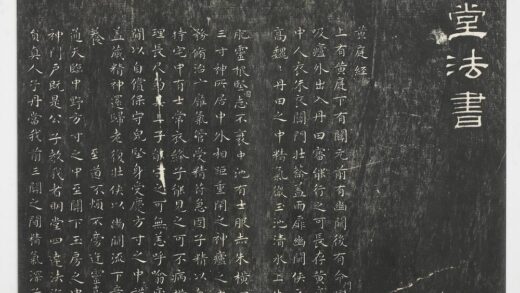 堂法書
黃庭經
上有黃庭下有關元前有幽闕後有命
吸廬外出入丹田審能行之可長存黃
中人衣朱衣關門壯籥蓋兩扉幽闕俠
高魏丹田之中精氣微玉池清水上
肥靈根堅志不衰中池有士服赤朱橫
三寸神所居中外相距重閉之神廬之
務脩治廱氣管受精符急固子精以
宅中有士常衣絳子能見之可不病
理長尺約其上子能守之可無恙呼翕
間以自償保守完堅身受慶方寸之中謹
蓋藏精神還歸老復壯俠以幽闕流下
養 至道不煩不旁迕靈
通天臨中野方寸之中至關下玉房之中
神門戶既是公子教我者明堂四達法
負真人子丹當我前三關之間精氣深